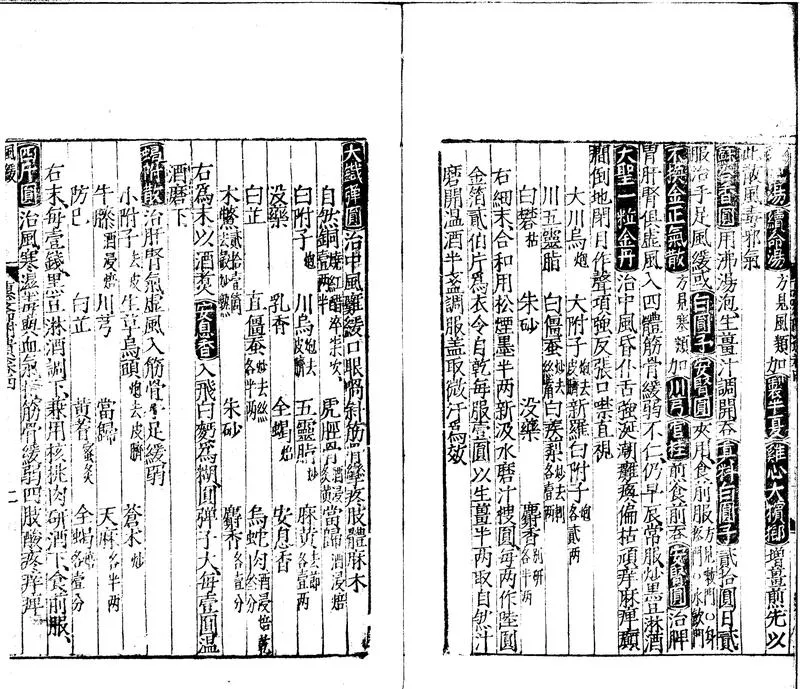 湯 續命湯 方見風類 加 製半夏 雞心大檳榔 增薑煎先以
此散風毒邪氣
蘇合香圓 用沸湯泡生薑汁調開吞 直料白圓子 貳拾圓日貳
服治手足風緩或 白圓子 安腎圓 夾用食前服
不換金正氣散 方見寒類 加 川芎 官桂 煎食前吞 安腎圓 治脾
胃肝腎俱虛風入四體筋骨緩弱不仁仍早辰常服炒黑豆淋酒
大聖一粒金丹 治中風昏仆舌強涎潮癱瘓偏枯頑痺麻嚲癲
癇倒地閉目作聲項強反張口噤直視
大川烏炮 大附子炮去皮臍 新羅白附子各貳兩
川五靈脂 白僵蠶炒去絲嘴 白蒺藜炒去刺各壹兩
白礬枯 朱砂 沒藥 麝香別研
右細末合和用松煙墨半兩新汲水磨汁𢮞圓每兩作陸圓
金箔貳伯片爲衣令自乾每服壹圓以生薑半兩取自然汁
磨開溫酒半盞調服蓋取微汗爲效
大鐵彈圓 治中風癱緩口眼喎斜筋攣疼肢體麻木
自然銅燒紅醋淬柒次壹兩半 虎脛骨 當歸酒浸焙
白附子炮 川烏炮去皮臍 五靈脂炒 麻黃去節各壹兩
没藥 乳香 全蝎焙 安息香
白芷 直僵蠶炒去絲各半兩 朱砂 烏蛇肉酒浸焙乾
木鱉貳拾壹箇去殼 麝香各壹分
右爲末以酒煑 安息香 入飛白麪爲糊圓彈子大每壹圓溫
酒磨下
蝎附散 治肝腎氣虛風入筋骨手足緩弱
小附子去皮 生草烏頭炮去皮臍 蒼木炒
牛膝酒浸焙 川芎 當歸 天麻各半兩
防巴 白芷 黄耆蜜炙 全蝎各壹分
右末每壹錢黑豆淋酒調下兼用核挑肉研酒下食前服
四斤圓 治風寒濕毒與血氣筋骨緩弱四肢酸疼痒痺
風緩
二